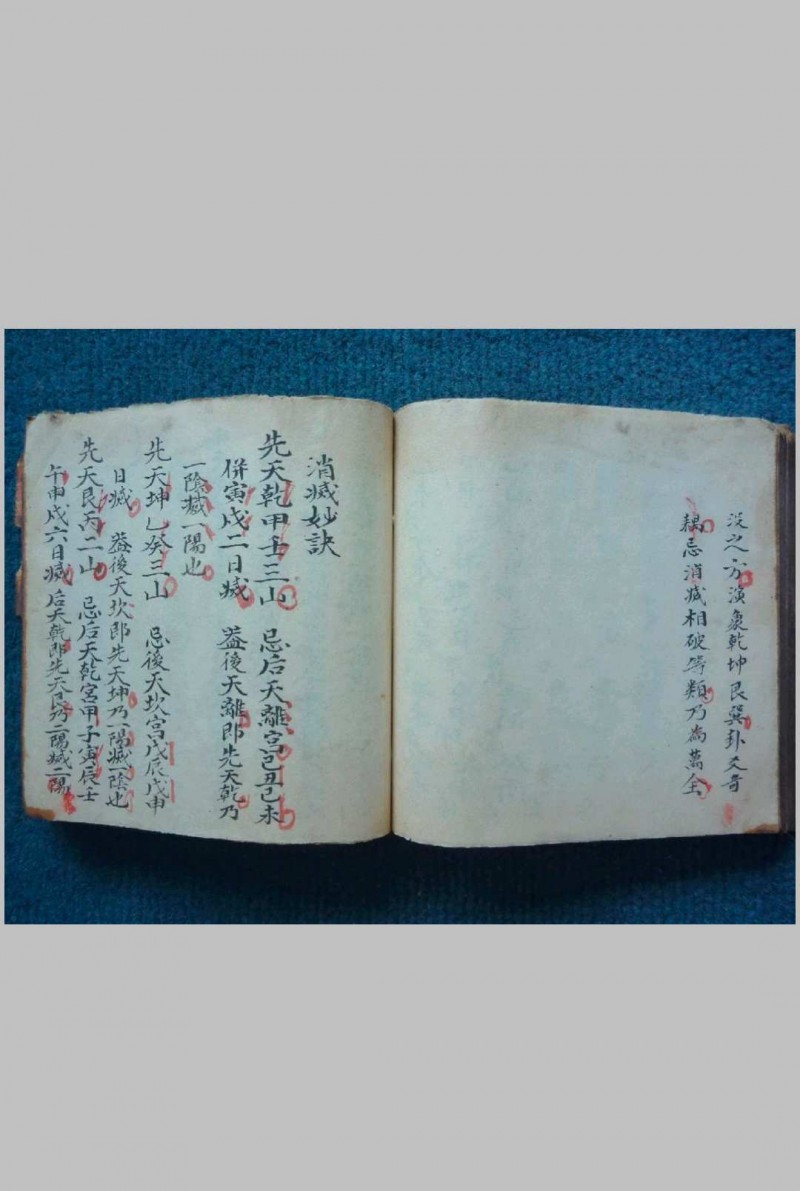 没之方演象乾坤艮巽卦爻奇
耦忌消滅相破等類乃為萬全
消滅妙訣
先天乾甲壬三山 忌后天離宮己丑己未
併寅戌二日滅 葢後天離即先天乾乃
一陰滅一陽也
先天坤乙癸三山 忌後天坎宮戊辰戊申
日滅 葢後天坎即先天坤乃一陽滅一陰也
先天艮丙二山 忌后天乾宮甲子寅辰壬
午申戌六日滅 后天乾即先天艮乃二陽滅二陽